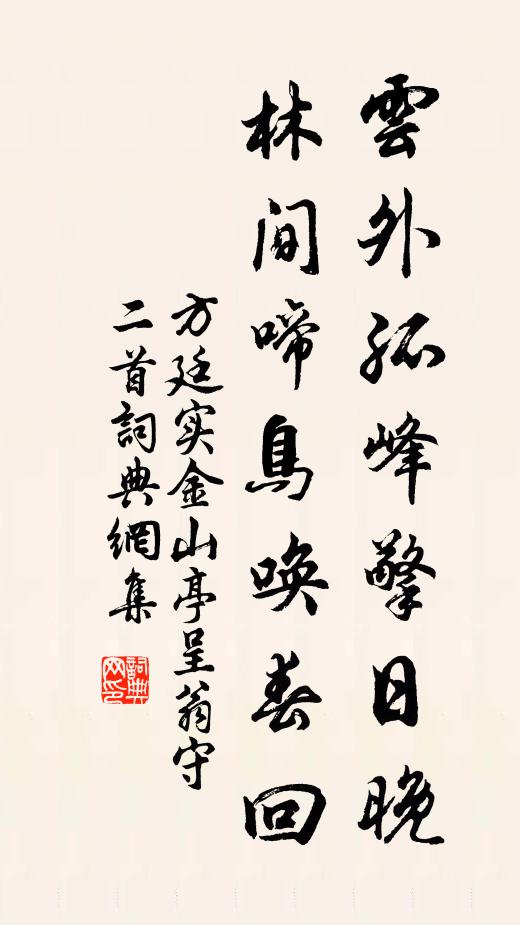 雲外孤峰擎日晚
林間啼鳥喚春回
方廷实金山亭呈翁守
二首詞典網集
詞典网印